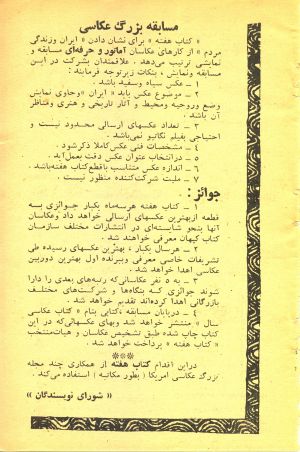 مسابقه بزرگ عکاسی
« کتاب هفته » برای نشان دادن « ایران وزندگی
مردم » از کارهای عکاسان آماتور و حرفه‌ای مسابقه و
نمایشی ترتیب می‌دهد. علاقمندان بشرکت در این
مسابقه ونمایش، بنکات زیرتوجه فرمایند:
۱ ــ عکس سیاه وسفید باشد.
۲ ــ موضوع عکس باید « ایران » وحاوی نمایش
وضع وروحیه ومحیط و آثار تاریخی و هنری ومناظر
آن باشد.
۳ ــ تعداد عکسهای ارسالی محدود نیست و
احتیاجی بفیلم نگاتیو نمی‌باشد.
۴ ــ مشخصات فنی عکس کاملا ذکرشود.
۵ ــ درانتخاب عنوان عکس دقت بعمل‌آید.
۶ ــ اندازه عکس متناسب باقطع کتاب هفته‌باشد.
۷ ــ ملیت شرکت‌کننده منظور نیست.
جوائز:
۱ ــ کتاب هفته هرسه‌ماه یکبار جوائزی به
قطعه ازبهترین عکسهای ارسالی خواهد داد وعکاسان
آنها بنحو شایسته‌ای در انتشارات مختلف سازمان
کتاب کیهان معرفی خواهند شد.
۲ ــ هرسال یکبار، بهترین عکسهای رسیده طی
تشریفات خاصی معرفی وببرنده اول بهترین دوربین
عکاسی اهدا خواهد شد.
۳ ــ به ده نفر عکاسانی‌که رتبه‌های بعدی را دارا
شوند جوائزی که بنگاه‌ها و شرکت‌های مختلف
بازرگانی اهدا کرده‌اند تقدیم خواهد شد.
۴ ــ درپایان مسابقه ،کتابی بنام « کتاب عکاسی
سال » منتشر خواهد شد وبهای عکسهائی‌که در این
کتاب چاپ شده طبق تشخیص عکاسان و هیات‌منتخب
« کتاب هفته » پرداخت خواهد شد.
***
دراین اقدام کتاب هفته از همکاری چند مجله
بزرگ عکاسی امریکا (بطور مکاتبه) استفاده می‌کند.
« شورای نویسندگان »